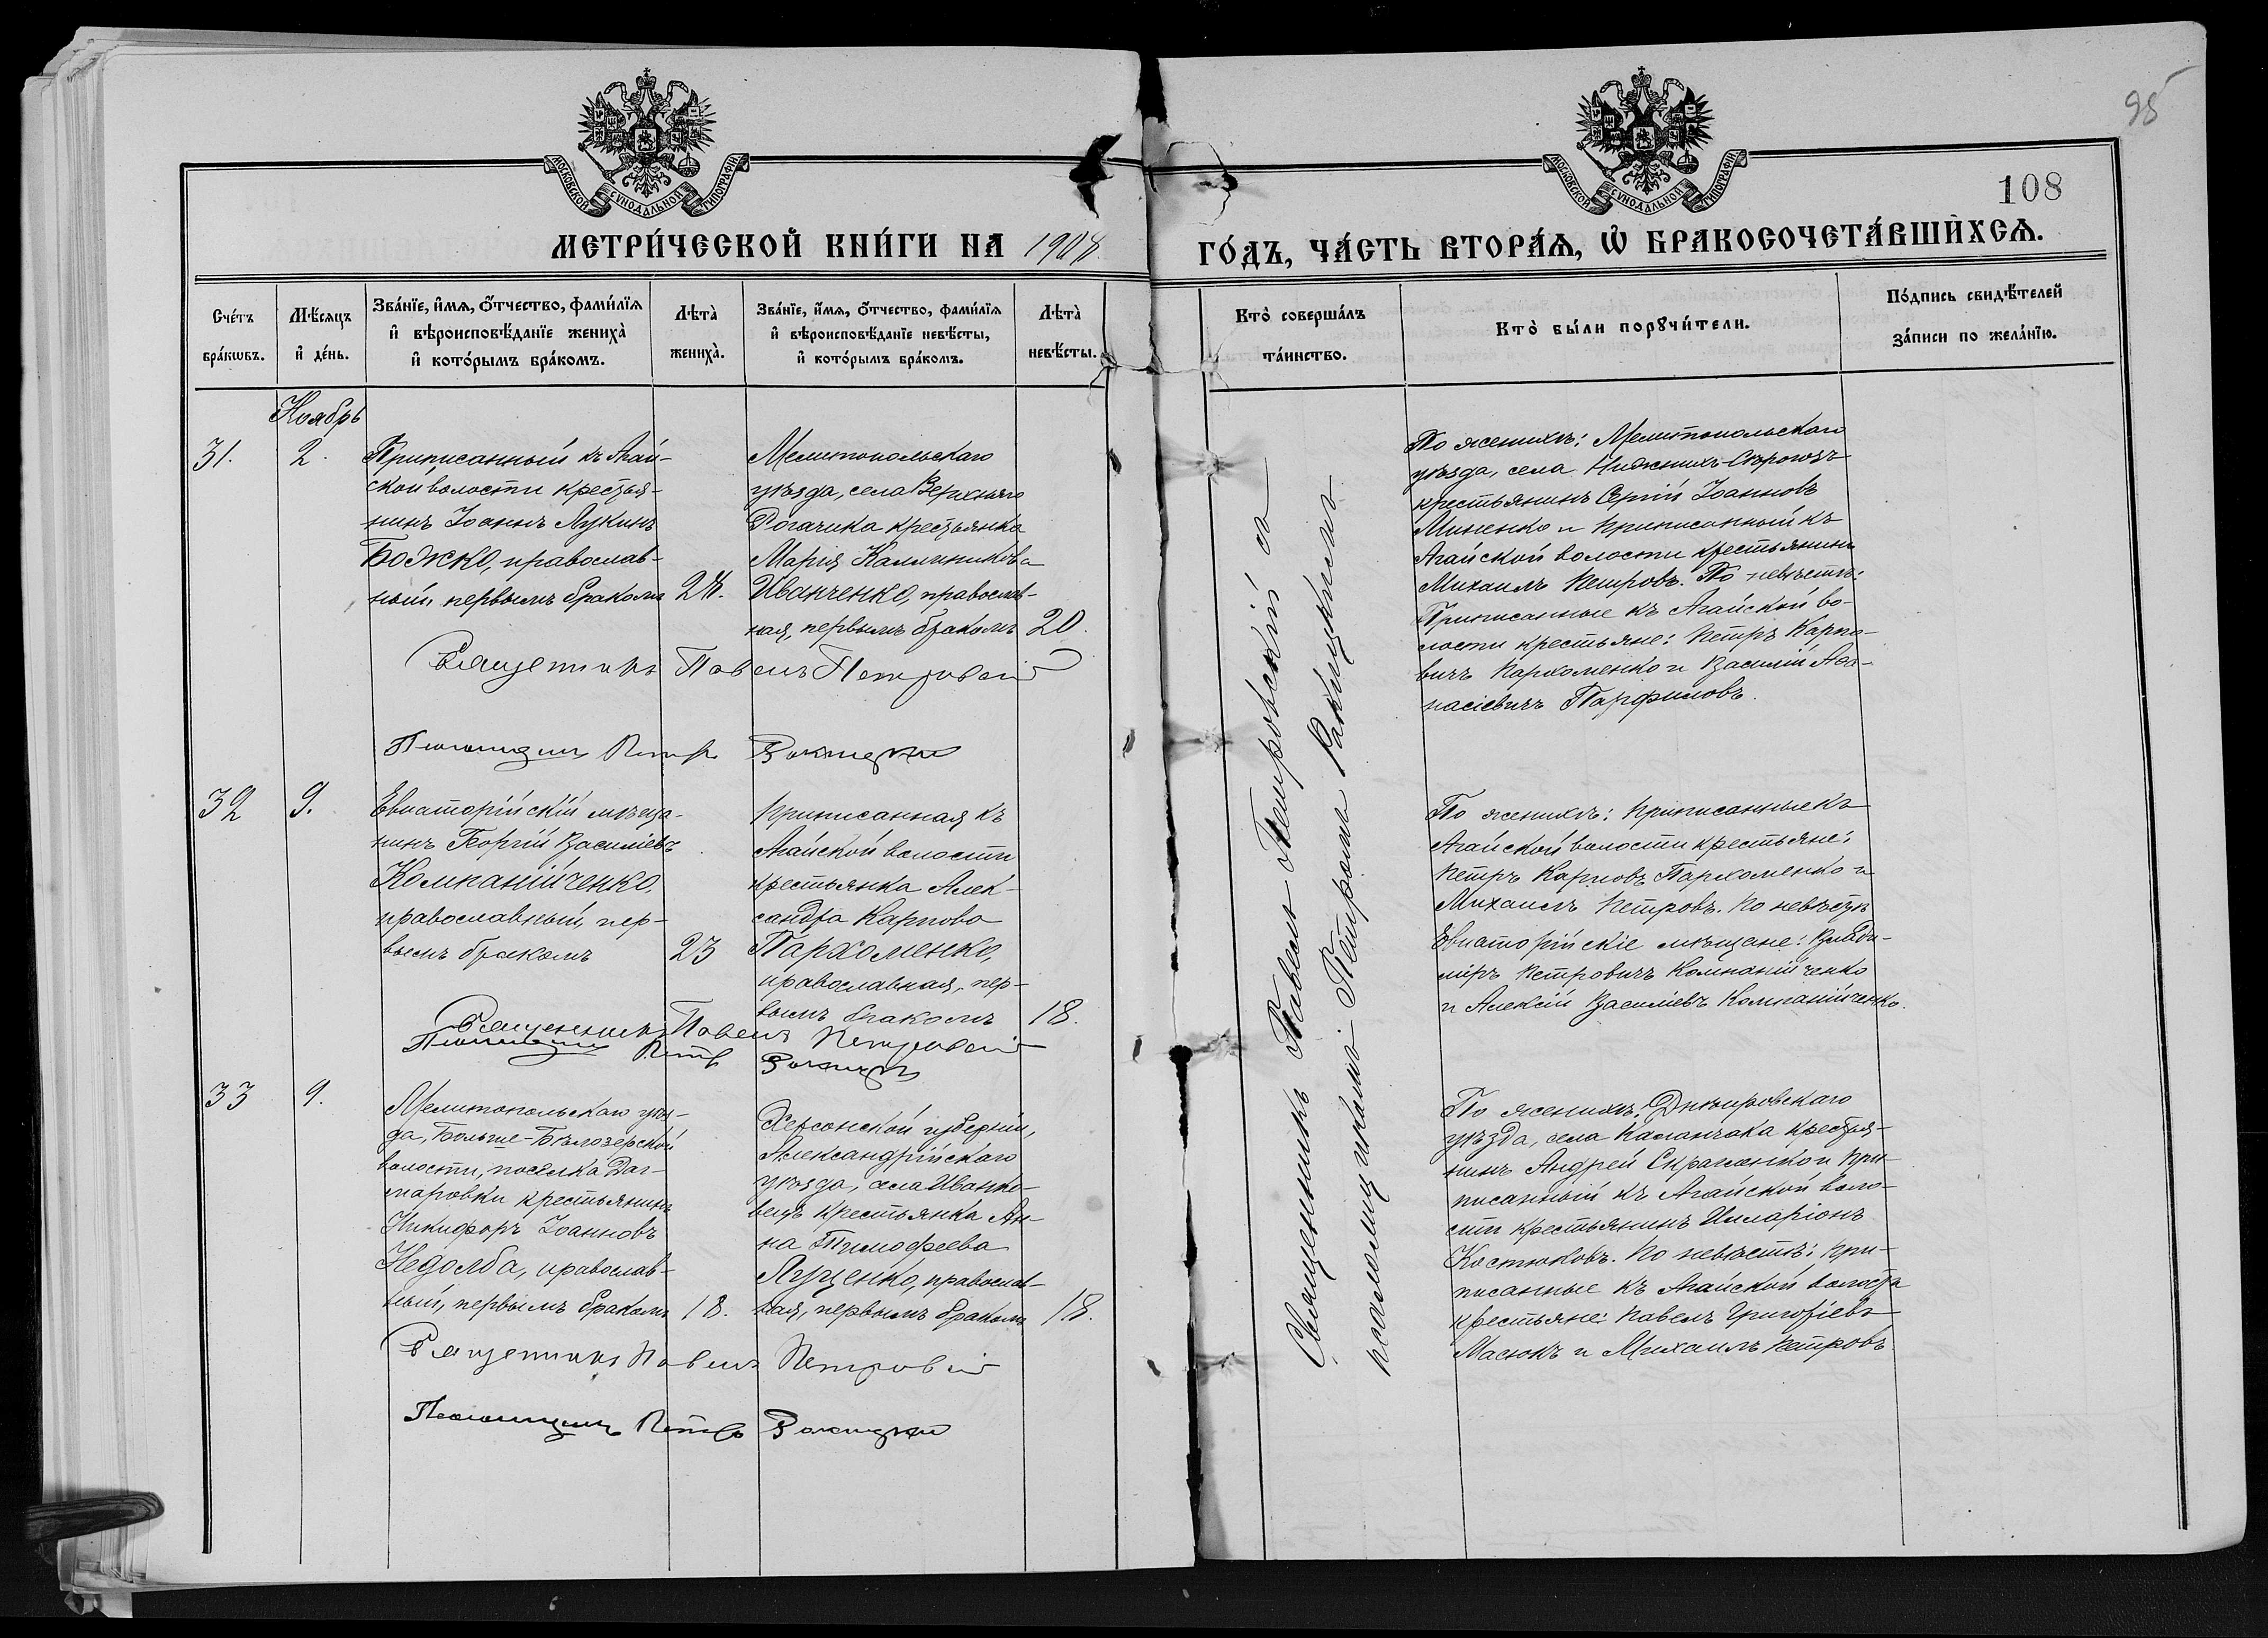 95
108
МОСКОВСКОЙ СѴНОДАЛЬНОЙ ТИПОГРАФІИ
МОСКОВСКОЙ СѴНОДАЛЬНОЙ ТИПОГРАФІИ
МЕТРИ́ЧЕСКОЙ КНИ́ГИ НА 1908
ГО́ДЪ, ЧА́СТЬ ВТОРА́Ѧ, Ѿ БРАКОСОЧЕТА́ВШИХСѦ.
Сче́тъ
бра́кѡвъ.
Мѣ́сяцъ
и҆ де́нь.
Зва́нїе, и҆́мѧ, ѻ҆́тчество, фами́лїѧ
и҆ вѣроисповѣ́данїе жениха̀
и҆ кото́рымъ бра́комъ.
Лѣта̀
жениха̀.
Зва́нїе, и҆́мѧ, ѻ҆́тчество, фами́лїѧ
и҆ вѣроисповѣ́данїе невѣ́сты,
и҆ кото́рымъ бра́комъ.
Лѣта̀
невѣ́сты.
Кто̀ соверша́лъ
та́инство.
Кто̀ бы́ли порꙋчи́тели.
По́дпись свидѣ́телей
за́писи по жела́нїю.
Ноябрь
31.
2.
Приписанный къ Агай-
ской волости крестья-
нинъ Іоаннъ Лукинъ
Божко, православ-
ный, первымъ бракомъ
24.
Мелитопольскаго
уѣзда, села Верхняго
Рогачика крестьянка
Марія Калиникова
Иванченко, православ-
ная, первымъ бракомъ
20.
Священникъ Павелъ Петровскій
Псаломщикъ Петръ Ракицкій
По женихѣ: Мелитопольскаго
уѣзда, села Нижнихъ-Сѣрогозъ
крестьянинъ Сергій Іоанновъ
Миненко и приписанный къ
Агайской волости крестьянинъ
Михаилъ Петровъ. По невѣстѣ:
Приписанные къ Агайской во-
лости крестьяне: Петръ Карпо-
вичъ Пархоменко и Василій Аѳа-
насіевичъ Парфиловъ.
32
9.
Евпаторійскій мѣща-
нинъ Георгій Василіевъ
Компанійченко,
православный, пер-
вымъ бракомъ
23
Приписанная къ
Агайской волости
крестьянка Алек-
сандра Карпова
Пархоменко,
православная, пер-
вымъ бракомъ
18.
Священникъ Павелъ Петровскій
Псаломщикъ Петръ Ракицкій
По женихѣ: Приписанные къ
Агайской волости крестьяне:
Петръ Карповъ Пархоменко и
Михаилъ Петровъ. По невѣстѣ
Евпаторійскіе мѣщане: Влади-
міръ Петровичъ Компанійченко
и Алексій Василіевъ Компанійченко.
33
9.
Мелитопольскаго уѣз-
да, Больше-Бѣлозерской
волости, поселка Даг-
маровки крестьянинъ
Никифоръ Іоанновъ
Недолба, православ-
ный, первымъ бракомъ
18.
Херсонской губерніи,
Александрійскаго
уѣзда, села Иванко-
вецъ крестьянка Ан-
на Тимофеева
Луценко, православ-
ная, первымъ бракомъ
18.
Священникъ Павелъ Петровскій
Псаломщикъ Петръ Ракицкій
По женихѣ: Днѣпровскаго
уѣзда, села Каланчака крестья-
нинъ Андрей и При-
писанный къ Агайской воло-
сти крестьянинъ Иларіонъ
Костюковъ. По невѣстѣ: При-
писанные къ Агайской волости
крестьяне: Павелъ Григоріевъ
Масюкъ и Михаилъ Петровъ.
Священникъ Павелъ Петровскій съ
псаломщикомъ Петромъ Ракицкимъ